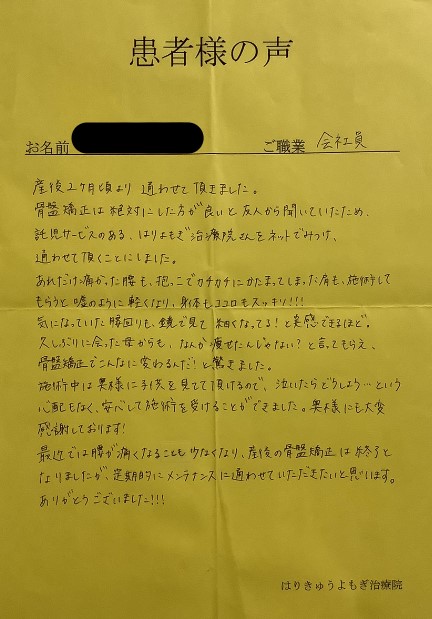 患者様の声
お名前
ご職業 会社員
産後2ヶ月頃より 通わせて頂きました。
骨盤矯正は絶対にした方が良いと友人から聞いていたため、
託児サービスのある、はりよもぎ治療院さんをネットでみつけ、
通わせて頂くことにしました。
あれだけ痛かった腰も、抱っこでカチカチにかたまってしまった肩も、施術して
もらうと嘘のように軽くなり、身体もココロもスッキリ!!!
気になっていた腰回りも、鏡で見て 細くなってる!と実感できるほど。
久しぶりに会った母からも、なんか痩せたんじゃない?と言ってもらえ、
骨盤矯正でこんなに変わるんだ!と驚きました。
施術中は奥様に子供を見てて頂けるので、泣いたらどうしよう…という
心配もなく、安心して施術を受けることができました。奥様にも大変
感謝しております!
最近では腰が痛くなることも少なくなり、産後の骨盤矯正は終了と
なりましたが、定期的にメンテナンスに通わせていただきたいと思います。
ありがとうございました!!!
はりきゅうよもぎ治療院